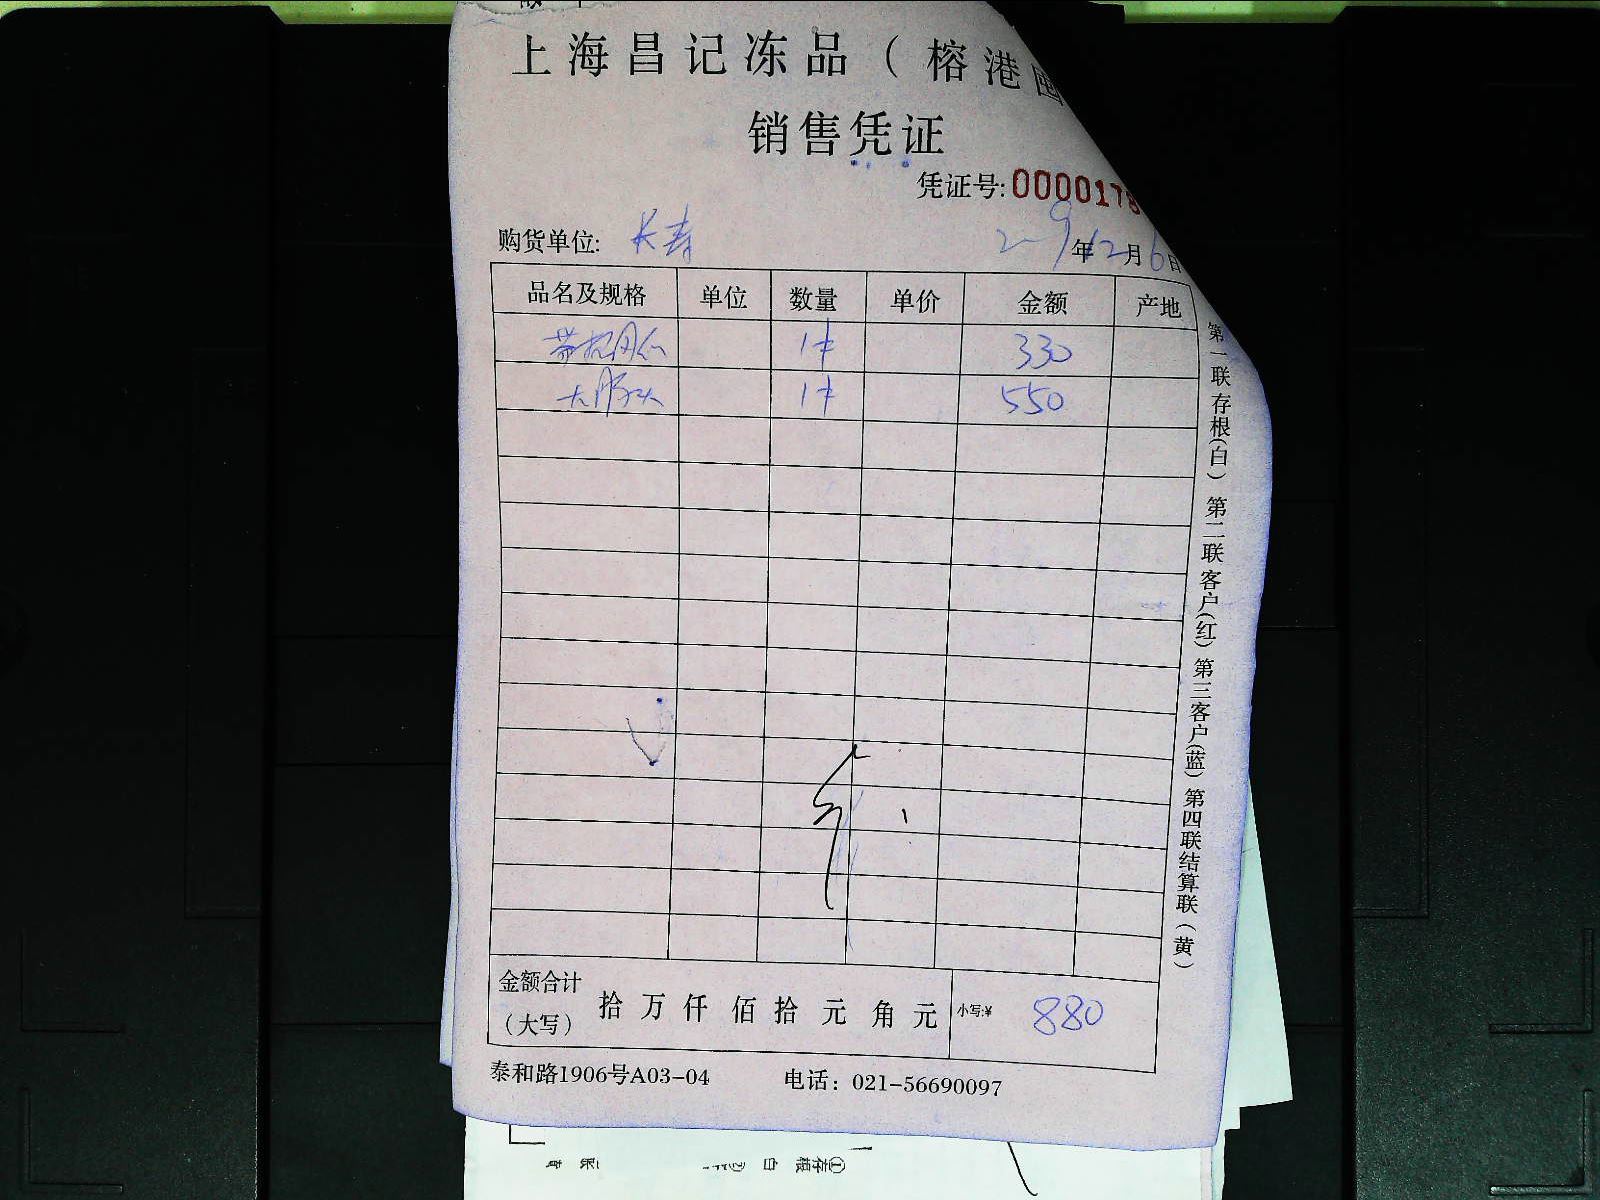 上海昌记冻品（榕港国
销售凭证
凭证号:0000178
购货单位: 长寿 2-9年12月6日
品名及规格 单位 数量 单价 金额 产地
1件 330
1件 550
金额合计（大写） 拾 万 仟 佰 拾 元 角 元 小写:¥ 880
泰和路1906号A03-04 电话：021-56690097
第一联存根(白) 第二联客户(红) 第三客户(蓝) 第四联结算联(黄)